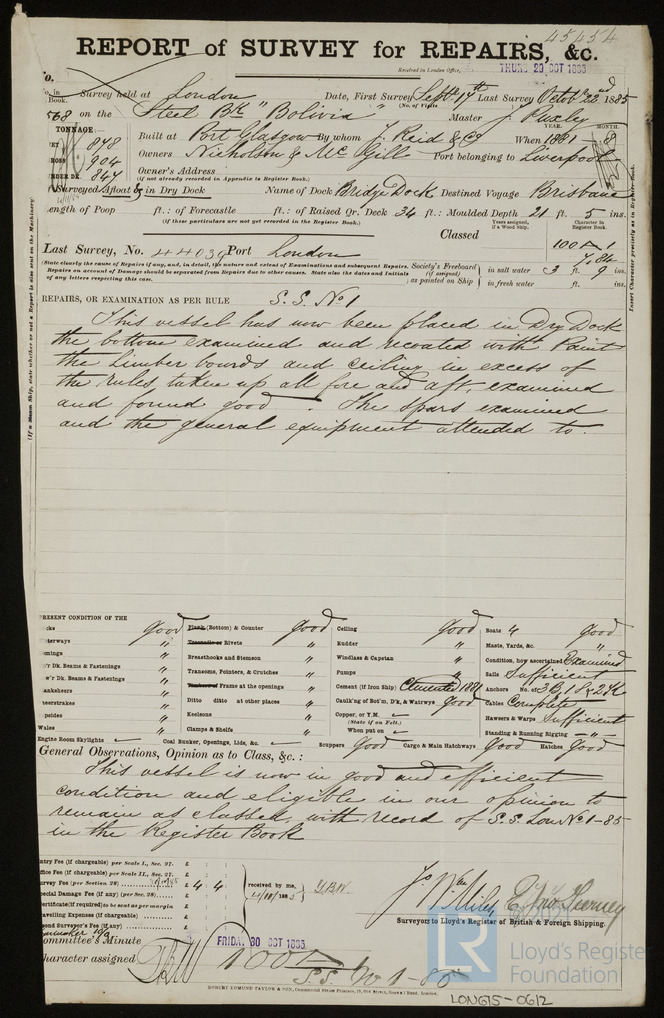 45454
REPORT of SURVEY for REPAIRS, &c.
Received in London Office, THURS 29 OCT 1885
No.
No. in Book. Survey held at London Date, First Survey Septr 17th Last Survey Octobr 22nd 1885
568 on the Steel Bk "Bolivia" (No. of Visits) Master J. Ruxley
TONNAGE: YEAR. MONTH.
NET 848 Built at Port Glasgow By whom J. Reid & Co When 1881 8
GROSS 904 Owners Nicholson & McGill Port belonging to Liverpool
UNDER DK. 847 Owner's Address
(if not already recorded in Appendix to Register Book.)
Surveyed Afloat & in Dry Dock Name of Dock Bridge Dock Destined Voyage Brisbane
Length of Poop ft.: of Forecastle ft.: of Raised Qr. Deck 34 ft.: Moulded Depth 21 ft. 5 ins.
(if these particulars are not yet recorded in the Register Book.)
Classed Years assigned, if a Wood Ship. Character in Register Book.
100 A 1
Last Survey, No. 44039 Port London 7.84
(State clearly the cause of Repairs if any, and, in detail, the nature and extent of Examinations and subsequent Repairs.
Repairs on account of Damage should be separated from Repairs due to other causes. State also the dates and Initials
of any letters respecting this case.
Society's Freeboard (if assigned) as painted on Ship
in salt water 3 ft. 9 ins.
in fresh water ft. ins.
REPAIRS, OR EXAMINATION AS PER RULE S.S. No 1
This vessel has now been placed in Dry Dock
the bottom examined and recoated with Paint
the limber boards and ceiling in excess of
the rules taken up all fore and aft, examined
and found good. The spars examined
and the general equipment attended to.
PRESENT CONDITION OF THE
Decks Good
Waterways "
Comings "
Up'r Dk. Beams & Fastenings "
Low'r Dk. Beams & Fastenings "
Plankshears "
Sheerstrakes "
Topsides "
Wales "
Engine Room Skylights ✓
Plank (Bottom) & Counter Good
Treenails or Rivets "
Breasthooks and Stemson "
Transoms, Pointers, & Crutches "
Timbers or Frame at the openings "
Ditto ditto at other places "
Keelsons "
Clamps & Shelfs "
Coal Bunker, Openings, Lids, &c. ✓
Ceiling Good
Rudder "
Windlass & Capstan "
Pumps "
Cement (if Iron Ship) Cemented 1881
Caulk'g of Bot'm, Dk., & Watrwys Good
Copper, or Y.M. ✓
(State if on Felt.)
When put on ✓
Scuppers Good Cargo & Main Hatchways Good Hatches Good
Boats 4 Good
Masts, Yards, &c. "
Condition, how ascertained Examined
Sails Sufficient
Anchors No. of 3B, 1S & 2K
Cables Complete
Hawsers & Warps Sufficient
Standing & Running Rigging — " —
General Observations, Opinion as to Class, &c.:
This vessel is now in good and efficient
condition and eligible in our opinion to
remain as classed, with record of S.S. Lon No 1-85
in the Register Book
Entry Fee (if chargeable) per Scale I., Sec. 27. £
Office Fee (if chargeable) per Scale II., Sec. 27. £
Survey Fee (per Section 28) £ 4 4 received by me,
Special Damage Fee (if any) (per Sec. 28) £
Certificate (if required) to be sent as per margin
Travelling Expenses (if chargeable) £
Second Surveyor's Fee (if any) £
Surveyors to Lloyd's Register of British & Foreign Shipping.
Committee's Minute FRIDAY 30 OCT 1885
Character assigned 100 A 1
S.S. No 1-85
ROBERT EDMUND TAYLOR & SON, Commercial Steam Printers, 19, Old Street, Goswell Road, London.
(If a Steam Ship, state whether or not a Report is also sent on the Machinery)
Insert Character precisely as in Register Book.
LR
© 2021
Lloyd's Register
Foundation
LON615-0612